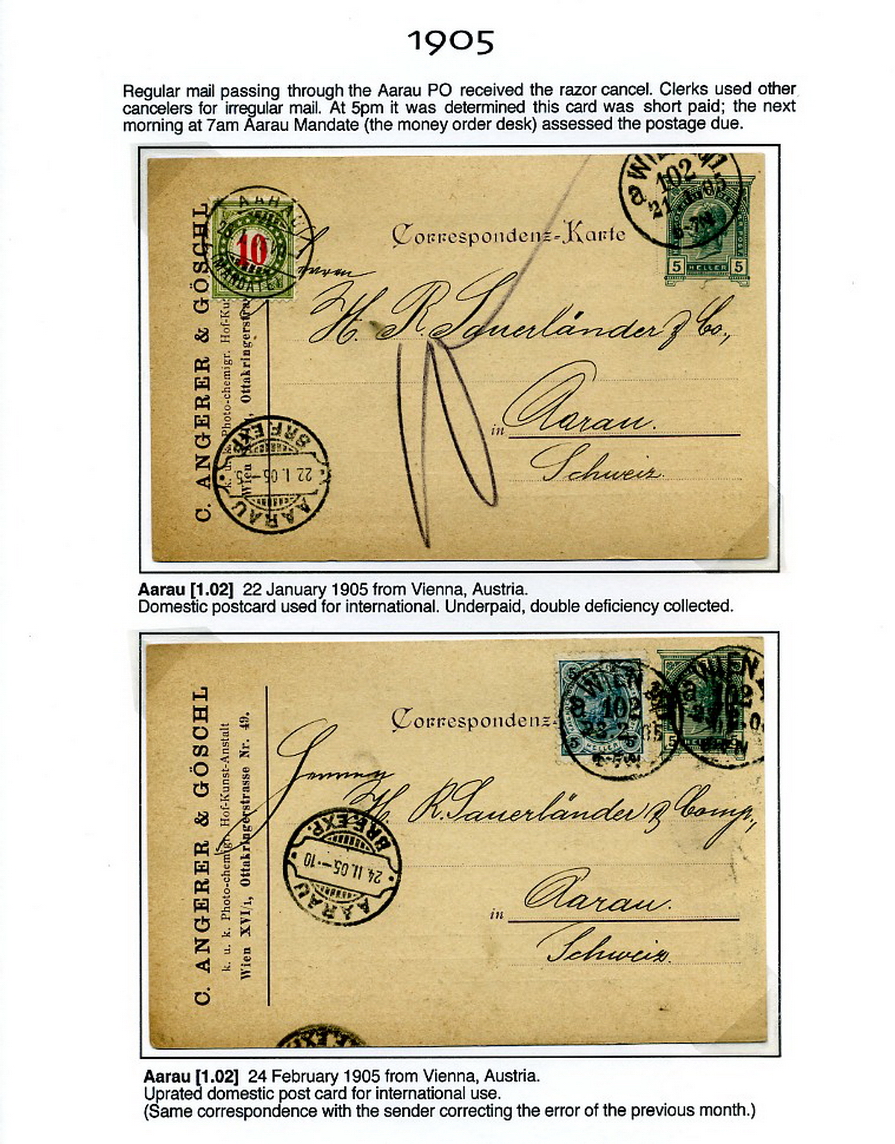 1905
Regular mail passing through the Aarau PO received the razor cancel. Clerks used other
cancelers for irregular mail. At 5pm it was determined this card was short paid; the next
morning at 7am Aarau Mandate (the money order desk) assessed the postage due.
WIEN
102
21
6-7N
Correspondenz-Karte
5 HELLER 5
AARAU
10
MANDATE
Herrn
H. R. Sauerländer & Co.,
in Aarau.
Schweiz.
10
C. ANGERER & GÖSCHL
k. u. k. Photo-chemigr. Hof-Ku
Wien Ottakringerstra
BRF.EXP.
22 I. 05 - 5
AARAU
Aarau [1.02] 22 January 1905 from Vienna, Austria.
Domestic postcard used for international. Underpaid, double deficiency collected.
WIEN
102
23.2.05
5 HELLER
WIEN
102
5
Correspondenz-
Herrn
H. R. Sauerländer & Comp.,
in Aarau.
Schweiz.
C. ANGERER & GÖSCHL
k. u. k. Photo-chemigr. Hof-Kunst-Anstalt
Wien XVI/1, Ottakringerstrasse Nr. 49.
BRF.EXP.
24 II. 05 - 10
AARAU
Aarau [1.02] 24 February 1905 from Vienna, Austria.
Uprated domestic post card for international use.
(Same correspondence with the sender correcting the error of the previous month.)